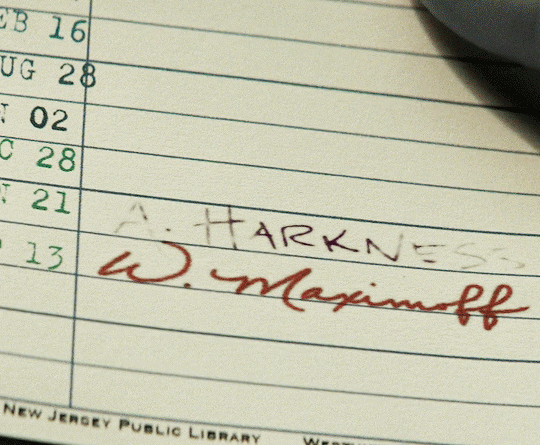 EB 16
UG 28
02
C 28
N 21
13
A. HARKNESS
W. Maximoff
NEW JERSEY PUBLIC LIBRARY